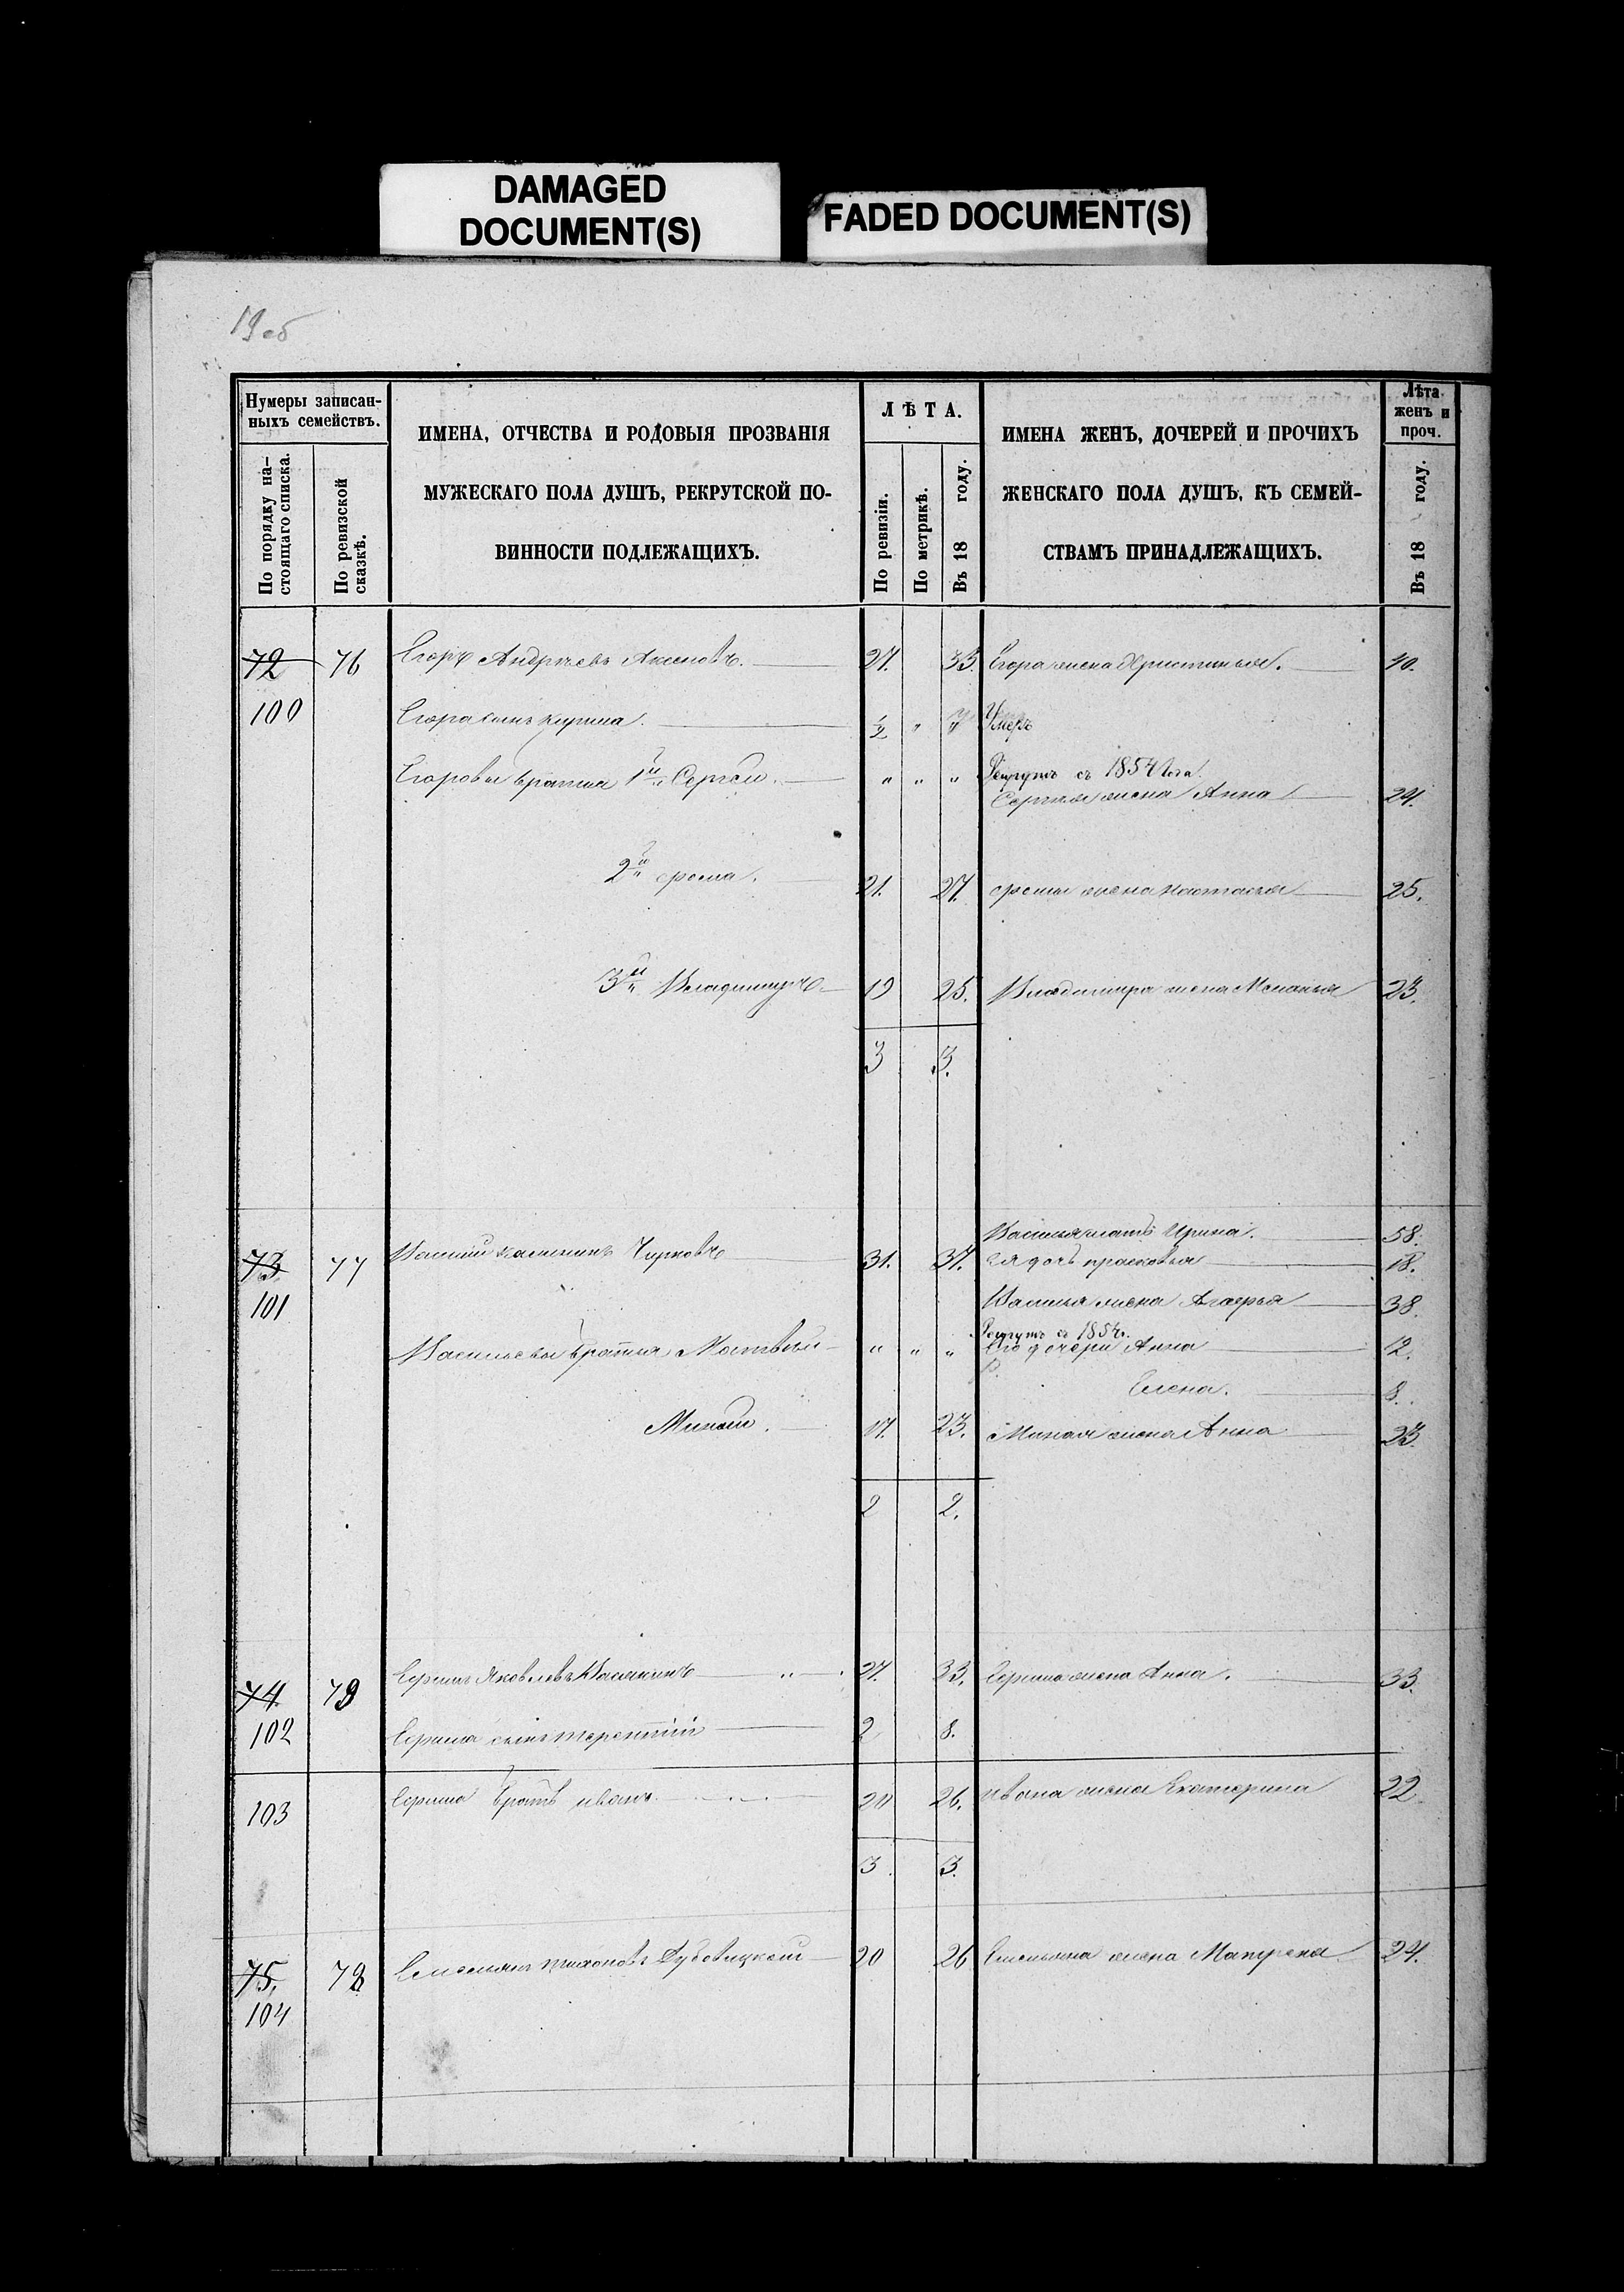 DAMAGED
DOCUMENT(S)
FADED DOCUMENT(S)
19 об
Нумеры записан-
ныхъ семействъ.
По порядку на-
стоящаго списка.
По ревизской
сказкѣ.
ИМЕНА, ОТЧЕСТВА И РОДОВЫЯ ПРОЗВАНІЯ
МУЖЕСКАГО ПОЛА ДУШЪ, РЕКРУТСКОЙ ПО-
ВИННОСТИ ПОДЛЕЖАЩИХЪ.
ЛѢТА.
По ревизіи.
По метрикѣ.
Въ 18 году.
ИМЕНА ЖЕНЪ, ДОЧЕРЕЙ И ПРОЧИХЪ
ЖЕНСКАГО ПОЛА ДУШЪ, КЪ СЕМЕЙ-
СТВАМЪ ПРИНАДЛЕЖАЩИХЪ.
Лѣта
женъ и
проч.
Въ 18 году.
72 76 Егоръ Андреевъ Аксеновъ. 27. 33. Егора жена Христинья. 40.
100 Егора сынъ 1/2 " " Умеръ
Егоровы братья 1й Сергей. " " " Рекрутъ съ 1854 года.
Сергея жена Анна 24.
2й ерема. 21. 27. еремы жена настасья 25.
3й Владимиръ 19 25. Владимира жена Меланья 23.
3 3.
Василья мать Ирина. 58.
73 77 Василий Чирковъ 31. 37. ея дочь прасковья 18.
101 Василья жена Агафья 38.
Рекрутъ съ 1854 г.
Васильевы братья Матвей " " " Его дочери Анна 12.
Елена. 8.
Минай. 17. 23. Миная жена Анна 23.
2 2.
74 79 Яковлевъ 27. 33. жена Анна. 33.
102 сынъ терентий 2 8.
103 братъ иванъ 20 26. ивана жена Екатерина 22
3. 3.
75. 78 Емельянъ тихоновъ Дубовицкой 20 26 Емельяна жена Матрена 24.
104